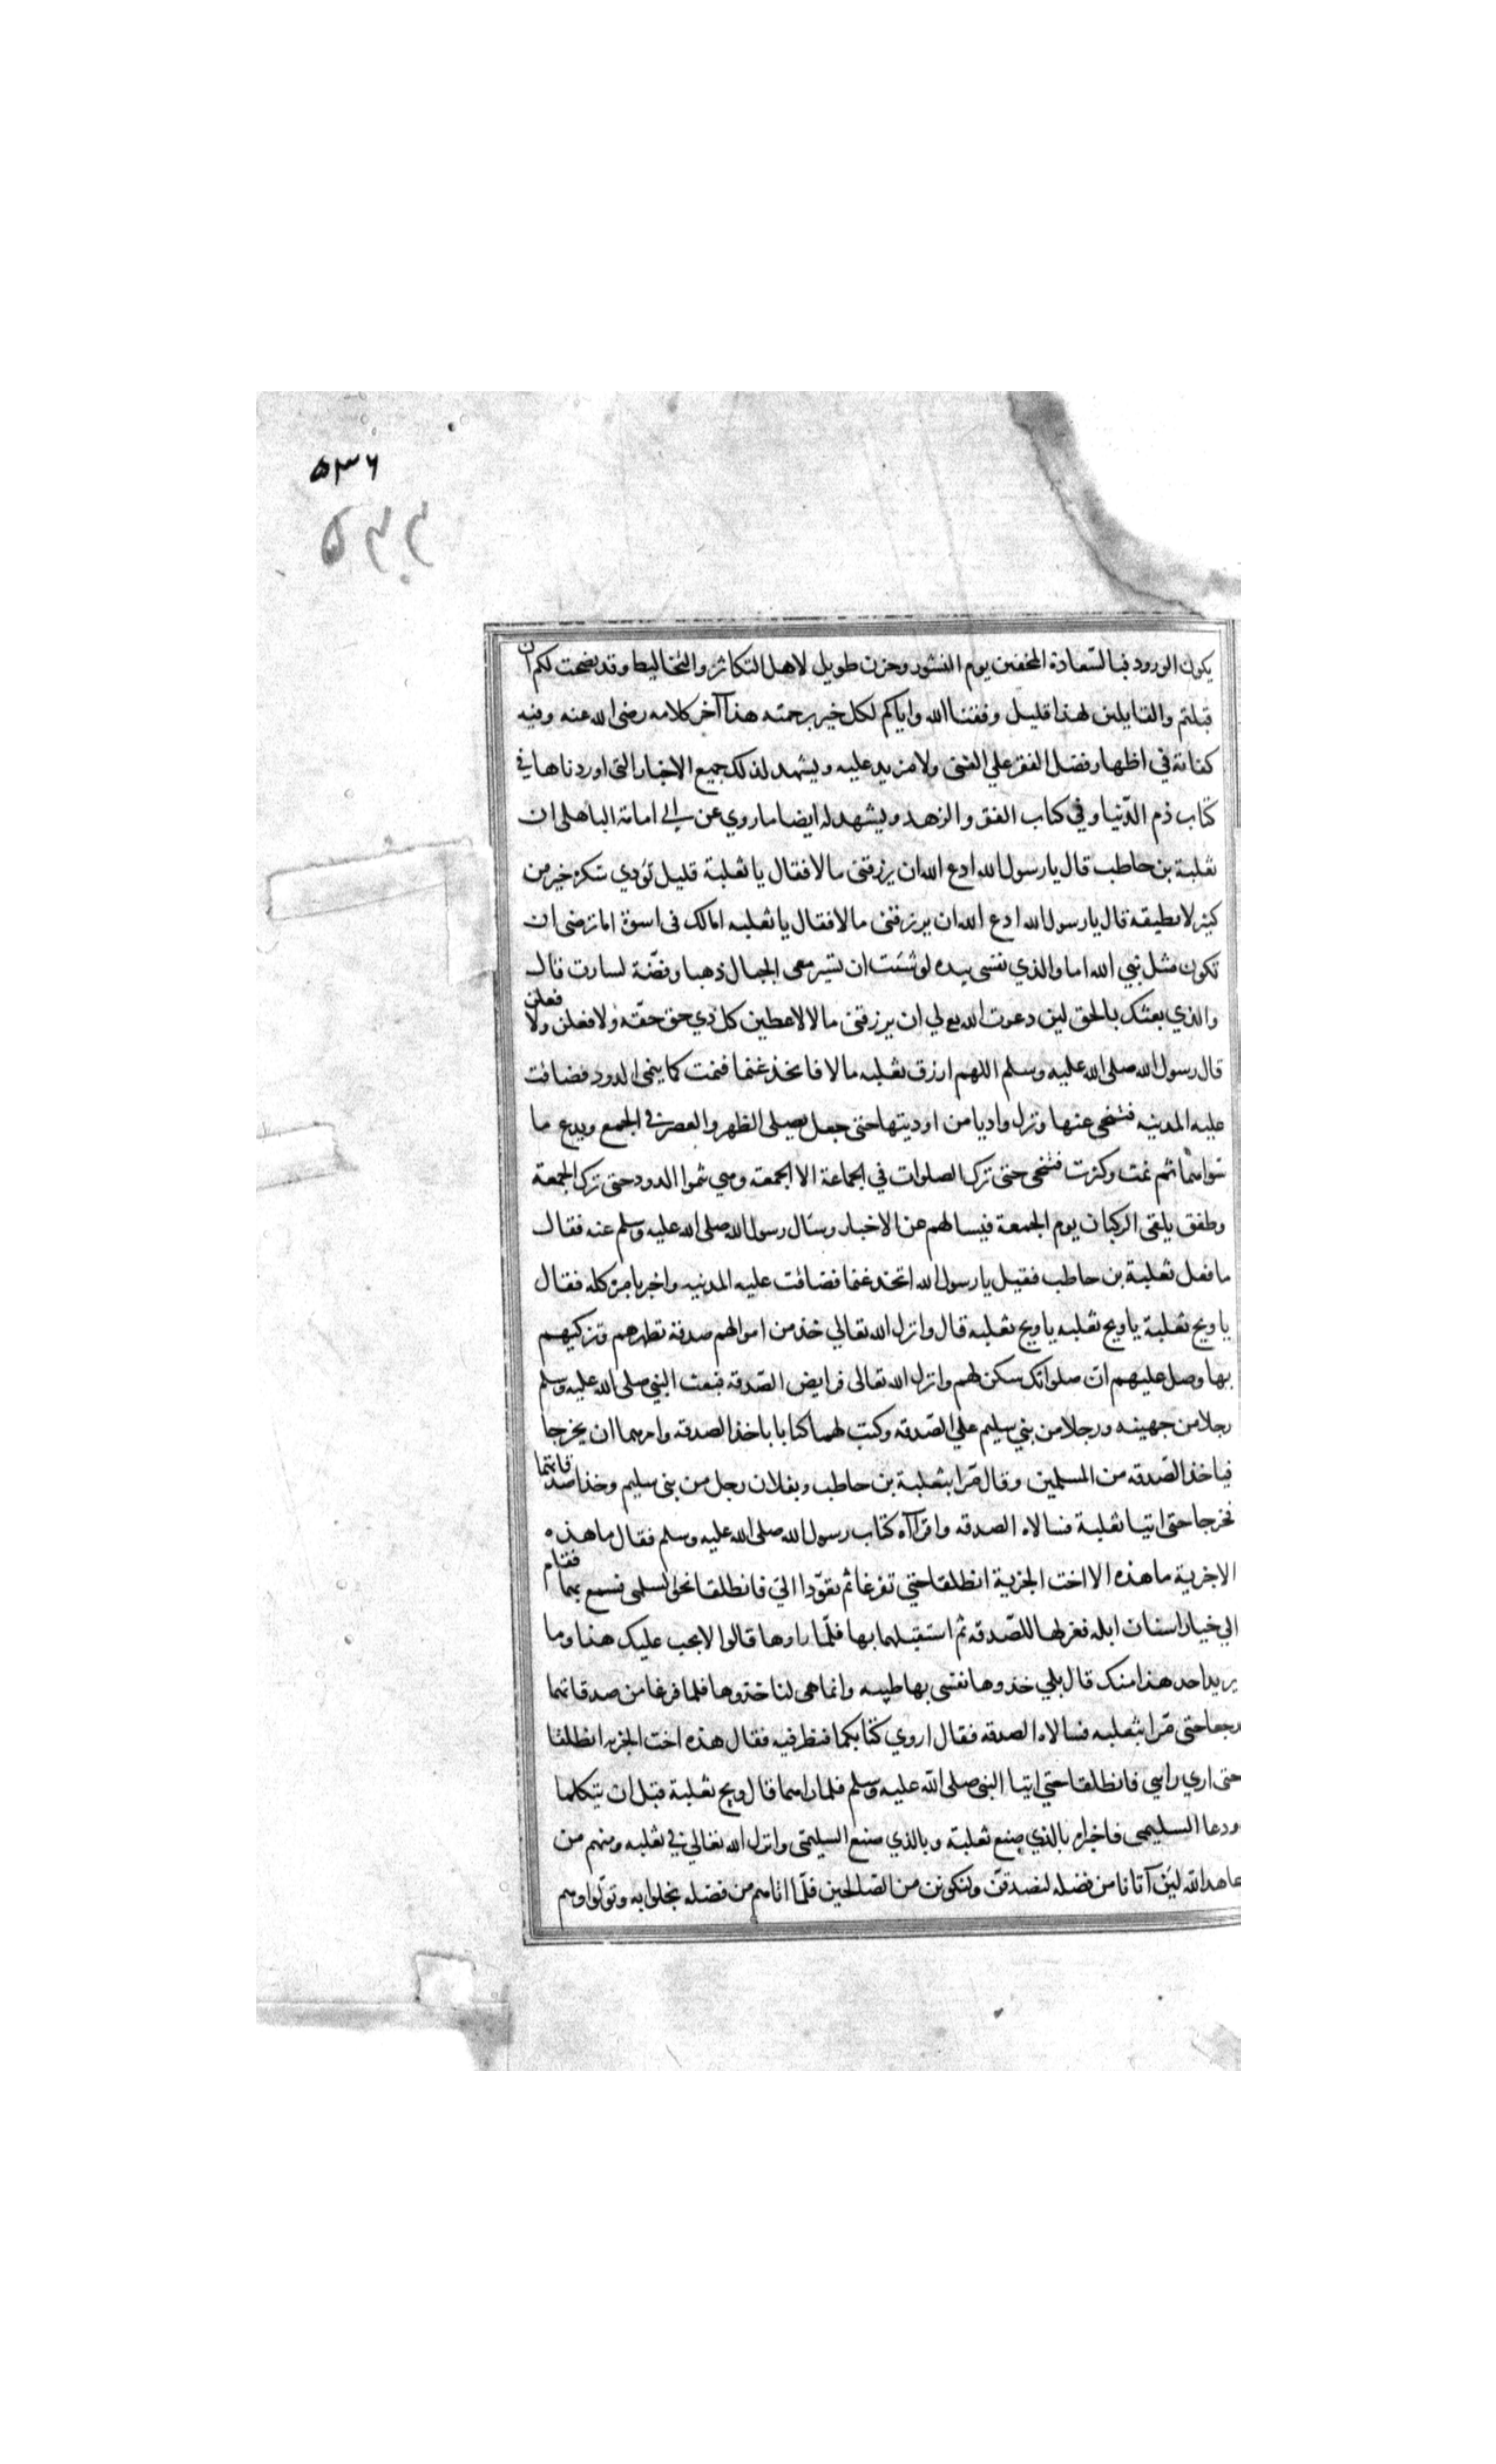 ٥٣٦
٥٣٣
يكون الورود فيالسّعادة المخفين يوم النشور وحزن طويل لاهل التكاثر والتخاليط وقد نصحت لكم ان
قبلتم والقايلين لهذا قليل وفقنا الله واياكم لكل خير برحمته هذا آخر كلامه رضى الله عنه وفيه
كفاية في اظهار فضل الفقر علي الغنى ولا مزيد عليه ويشهد لذلك جميع الاخبار التى اوردناها في
كتاب ذم الدّنيا وفي كتاب الفقر والزهد ويشهد له ايضا ما روي عن ابي امامة الباهلى ان
ثعلبة بن حاطب قال يا رسول الله ادع الله ان يرزقنى مالا فقال يا ثعلبة قليل تؤدي شكره خير من
كثير لا تطيقه قال يا رسول الله ادع الله ان يرزقنى مالا فقال يا ثعلبه امالك فى اسوة اما ترضى ان
تكون مثل نبي الله اما والذي نفسى بيده لو شئت ان تسير معى الجبال ذهبا وفضّة لسارت قال
والذي بعثك بالحق لين دعوت الله لي ان يرزقنى مالا لاعطين كل ذي حق حقّه ولافعلن ولافعلن
قال رسول الله صلى الله عليه وسلم اللهم ارزق ثعلبه مالا فاتخذ غنما فنمت كما ينمى الدود فضاقت
عليه المدينه فتنحى عنها ونزل واديا من اوديتها حتى جعل يصلى الظهر والعصر في الجمع ويدع ما
سواهما ثم نمت وكثرت فتنحى حتى ترك الصلوات في الجماعة الا الجمعة وهي تنموا الدود حتى ترك الجمعة
وطفق يلقى الركبان يوم الجمعة فيسالهم عن الاخبار وسال رسول الله صلى الله عليه وسلم عنه فقال
ما فعل ثعلبة بن حاطب فقيل يا رسول الله اتخذ غنما فضاقت عليه المدينه واخبر بامره كله فقال
يا ويح ثعلبة يا ويح ثعلبه يا ويح ثعلبه قال وانزل الله تعالي خذ من اموالهم صدقة تطهرهم وتزكيهم
بها وصل عليهم انّ صلواتك سكن لهم وانزل الله تعالى فرايض الصّدقه فبعث النبي صلى الله عليه وسلم
رجلا من جهينه ورجلا من بني سليم علي الصّدقه وكتب لهما كتابا باخذ الصدقه وامرهما ان يخرجا
فياخذ الصّدقه من المسلمين وقال مّرا بثعلبة بن حاطب وبفلان رجل من بنى سليم وخذا صدقاتهما
فخرجا حتى اتيا ثعلبة فسالاه الصدقه واقرآه كتاب رسول الله صلى الله عليه وسلم فقال ما هذه
الا جزية ما هذه الا اخت الجزية انطلقا حتي تفرغا ثم تعوّدا الىّ فانطلقا نحو السلمى فسمع بهما فقام
الي خيار اسنان ابله فعزلها للصّدقه ثم استقبلهما بها فلمّا راوها قالوا لا يجب عليك هذا وما
يريد احد هذا منك قال بلي خذوها نفسى بها طيبه وانما هى لنا خذوها فلما فرغا من صدقاتهما
رجعا حتى مّرا بثعلبه فسالاه الصدقه فقال اروي كتابكما فنظر فيه فقال هذه اخت الجزيه انطلقا
حتى اري رايي فانطلقا حتي اتيا النبى صلى الله عليه وسلم فلما راهما قال ويح ثعلبة قبل ان يتكلما
ودعا السليمى فاخبراه بالذي صنع ثعلبة وبالذي صنع السليمّى وانزل الله تعالي في ثعلبه ومنهم من
عاهد الله لين آتانا من فضله لنصدقنّ ولنكونن من الصّالحين فلمّا اتاهم من فضله بخلوا به وتولّوا وهم